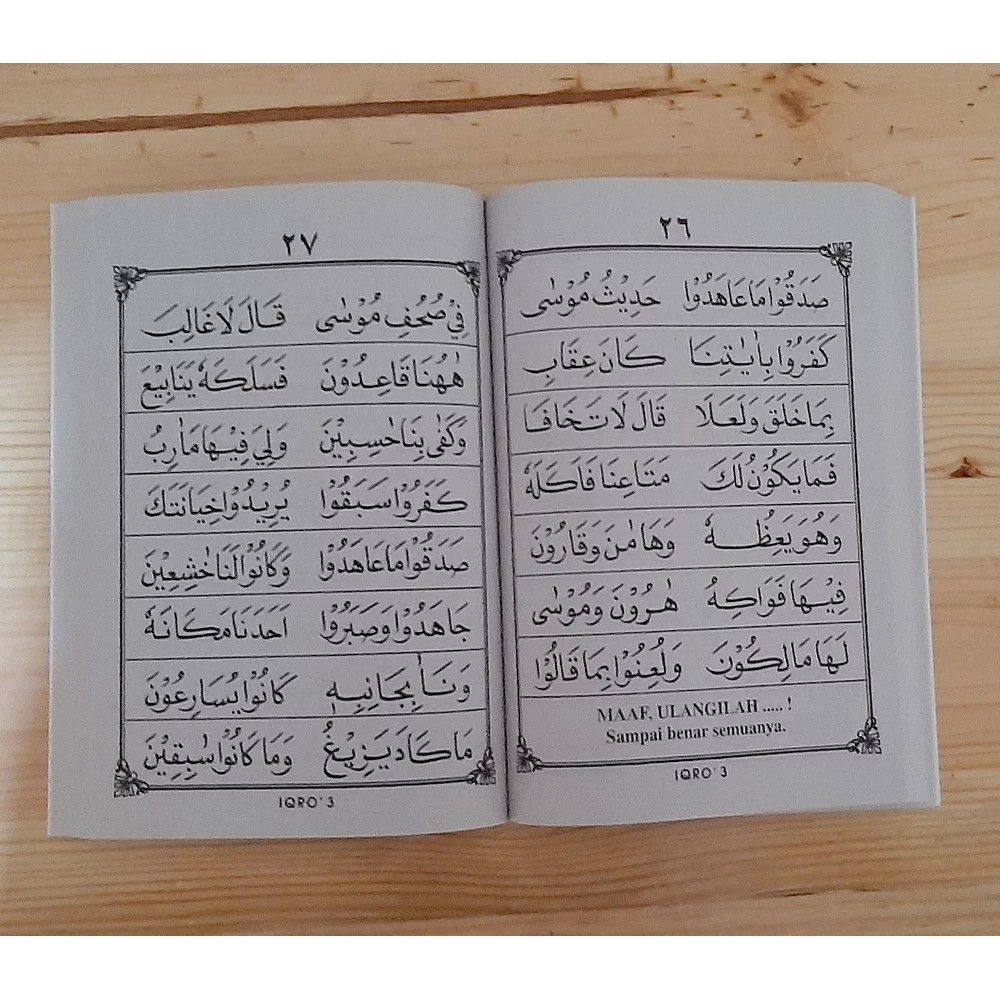 ٢٦
صَدَقُوْا مَا عَاهَدُوْا حَدِيْثُ مُوْسٰى
كَفَرُوْا بِاٰيٰتِنَا كَانَ عِقَابِ
بِمَا خَلَقَ وَلَعَلَا قَالَ لَا تَخَافَا
فَمَا يَكُوْنُ لَكَ مَتَاعِنَا فَاَكَلَهٗ
وَهُوَ يَعِظُهٗ وَهَامٰنَ وَقَارُوْنَ
فِيْهَا فَوَاكِهُ هٰرُوْنَ وَمُوْسٰى
لَهَا مَالِكُوْنَ وَلُعِنُوْا بِمَا قَالُوْا
MAAF, ULANGILAH ..... !
Sampai benar semuanya.
IQRO' 3
٢٧
فِيْ صُحُفِ مُوْسٰى قَالَ لَا غَالِبَ
هٰهُنَا قَاعِدُوْنَ فَسَلَكَهٗ يَنَابِيْعَ
وَكَفٰى بِنَا حٰسِبِيْنَ وَلِيَ فِيْهَا مَاٰرِبُ
كَفَرُوْا سَبَقُوْا يُرِيْدُوْا خِيَانَتَكَ
صَدَقُوْا مَا عَاهَدُوْا وَكَانُوْا لَنَا خٰشِعِيْنَ
جَاهَدُوْا وَصَبَرُوْا اَحَدَنَا مَكَانَهٗ
وَنَاٰ بِجَانِبِهٖ كَانُوْا يُسَارِعُوْنَ
مَا كَادَ يَزِيْغُ وَمَا كَانُوْا سٰبِقِيْنَ
IQRO' 3